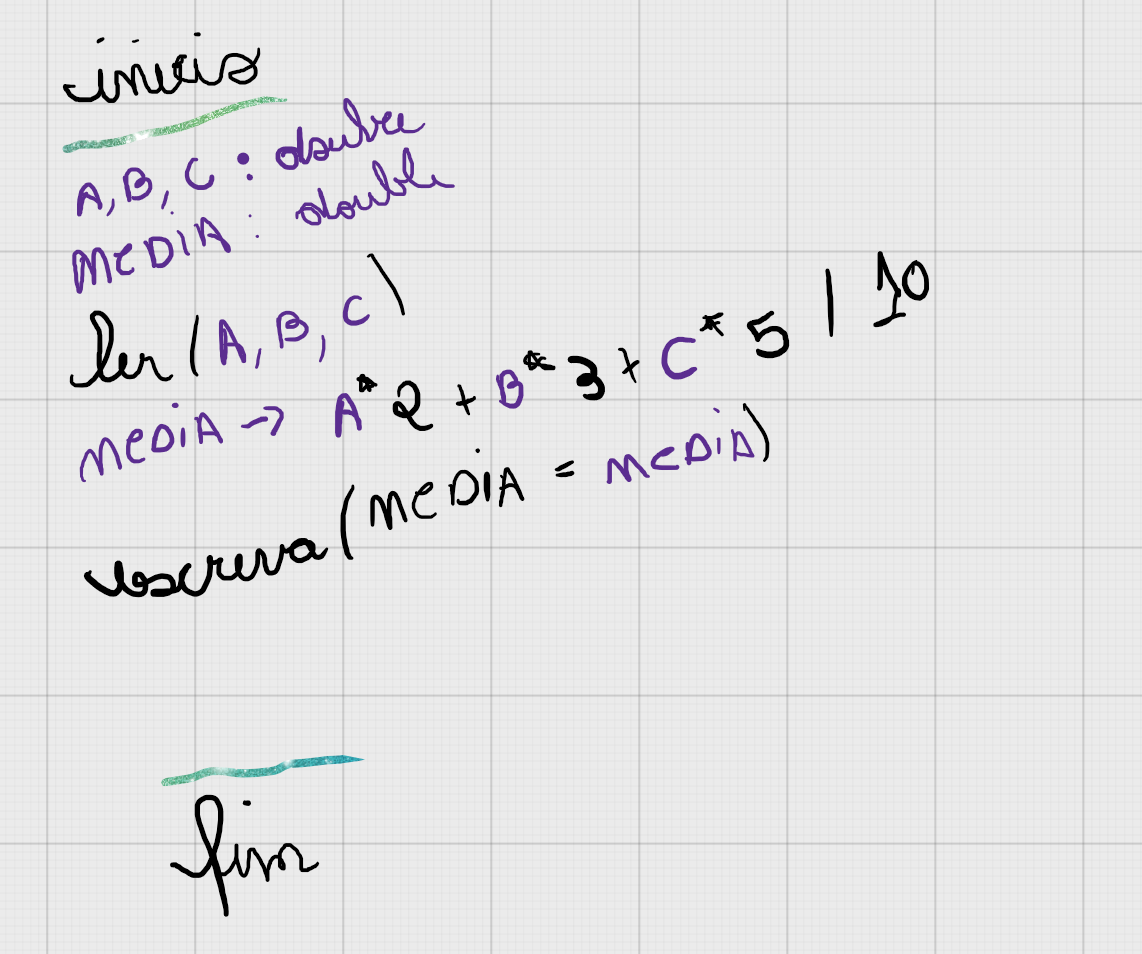 inicio
A, B, C : double
MEDIA : double
ler (A, B, C)
MEDIA -> A * 2 + B * 3 + C * 5 / 10
escreva (MEDIA = MEDIA)
fim